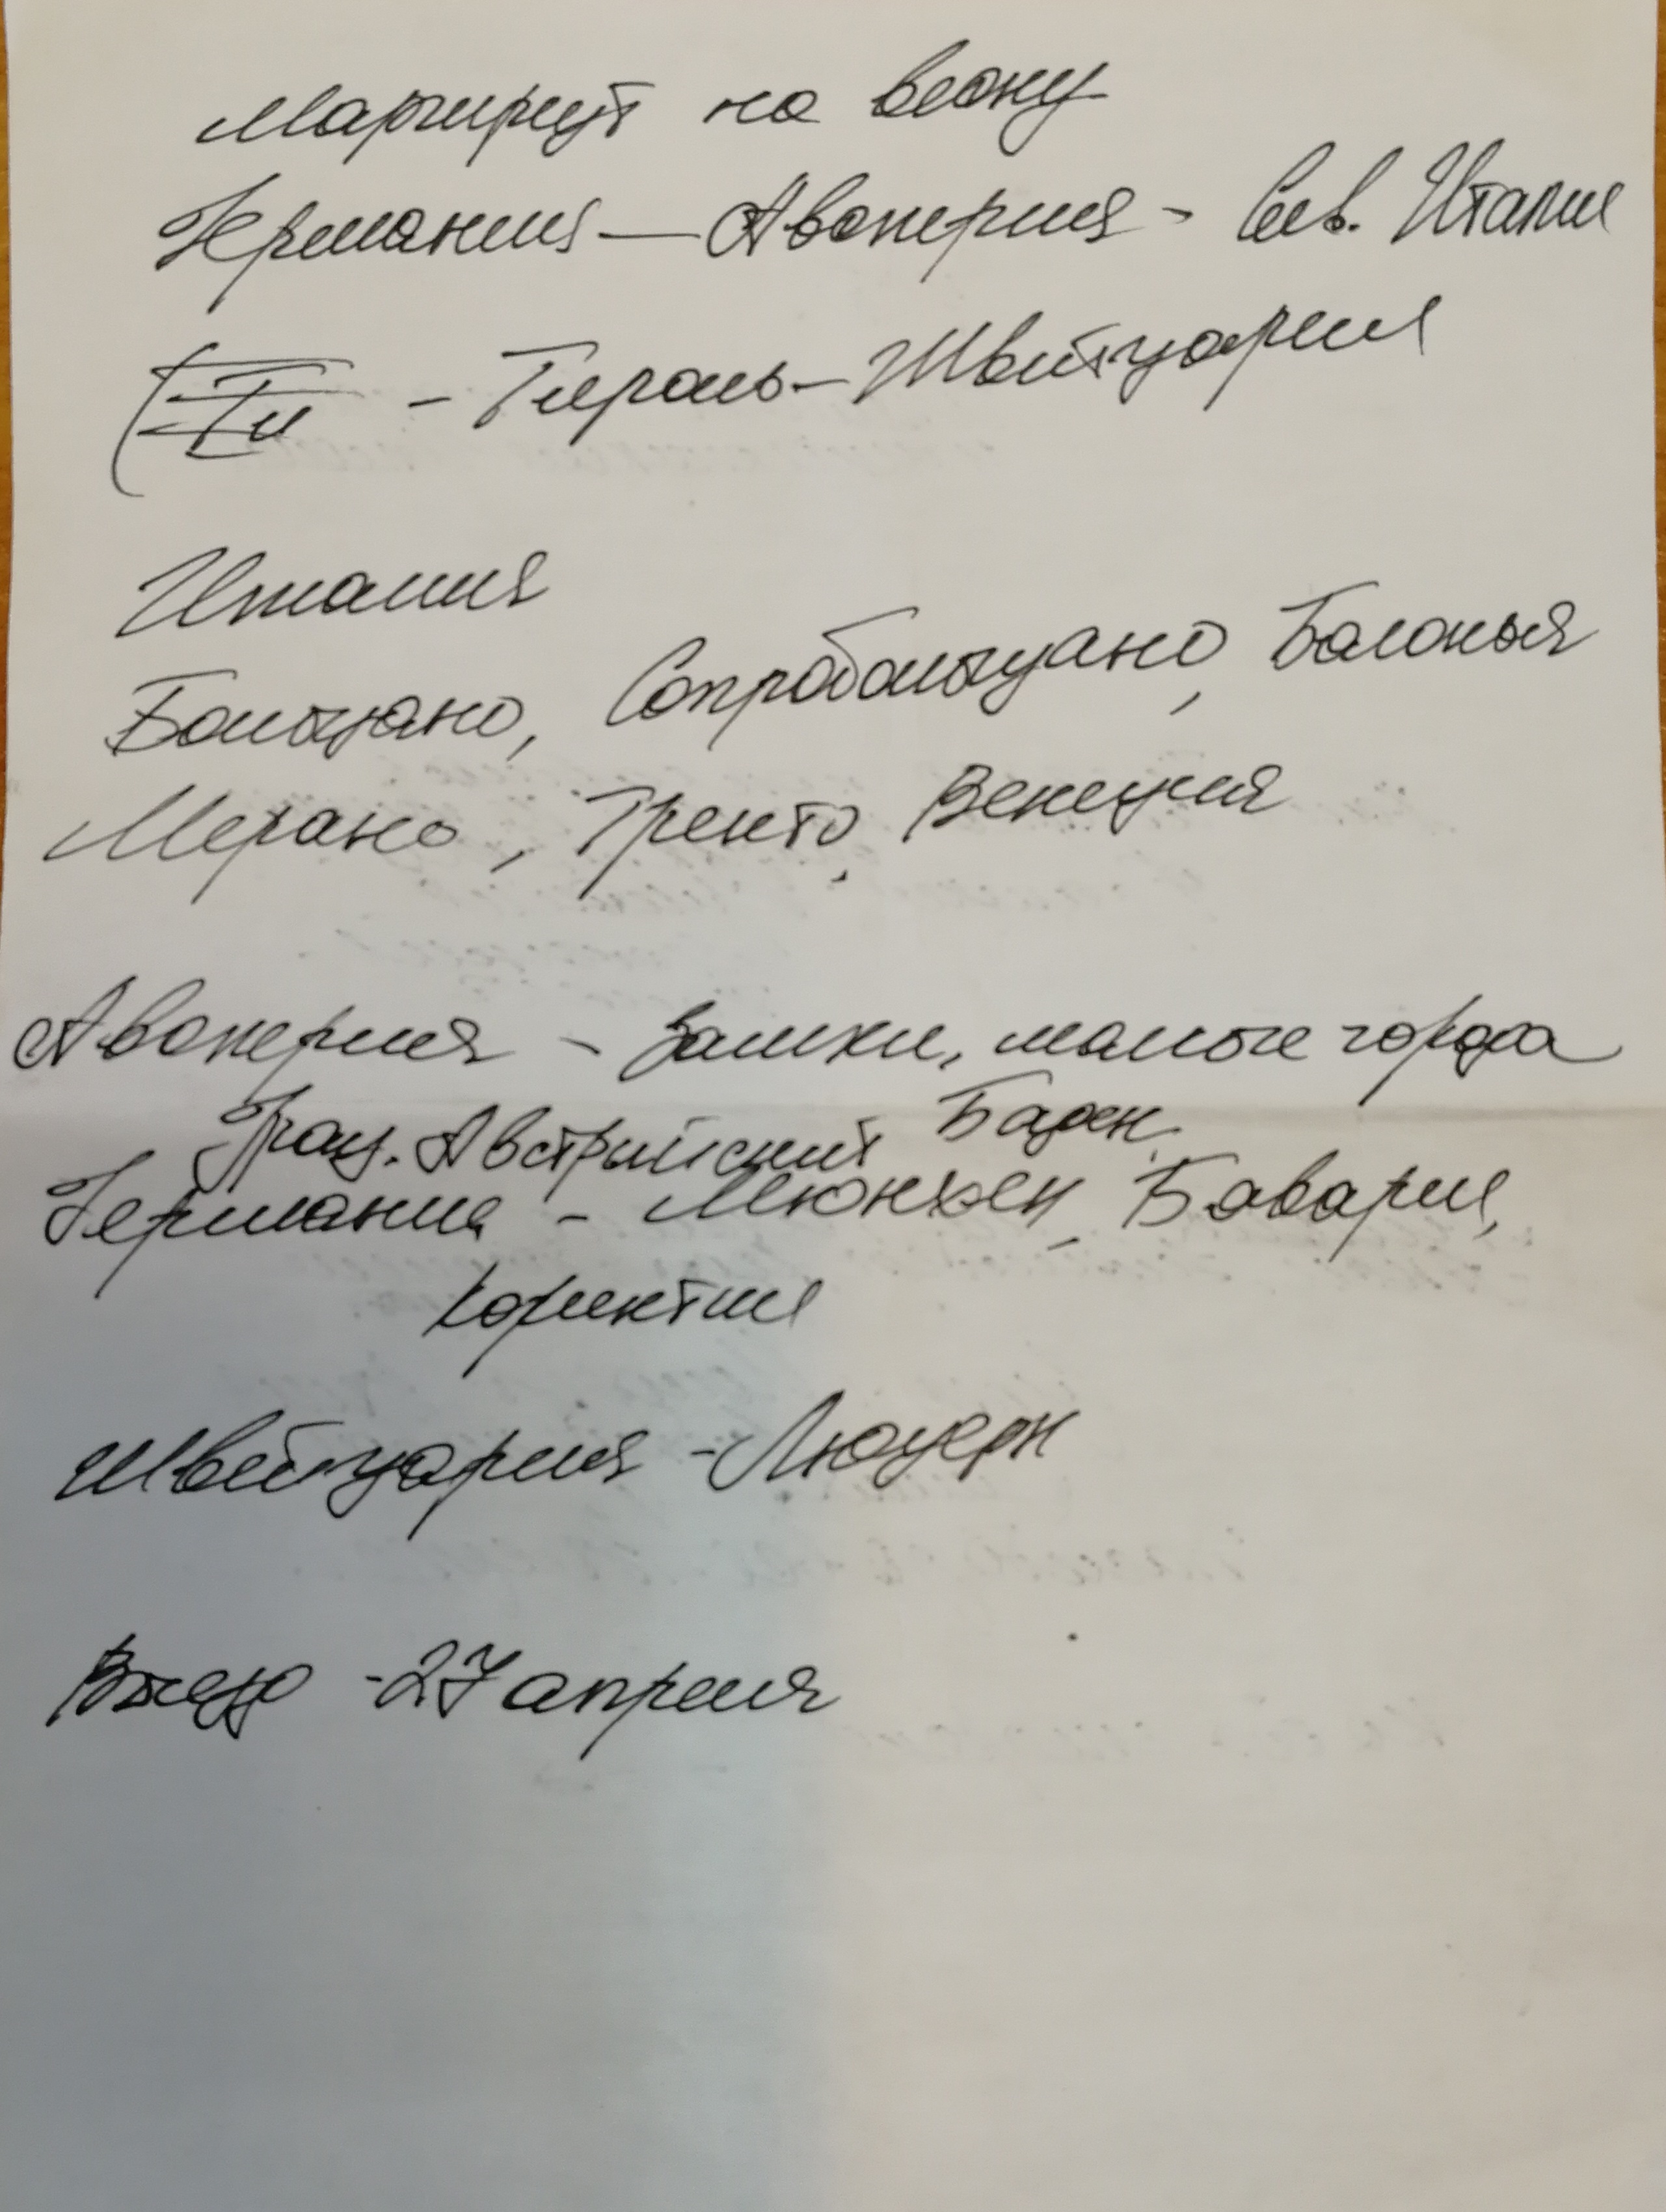 Маршрут на весну
Германия — Австрия - Сев. Италия
- Тироль - Швейцария
Италия
Больцано, Сопрабольцано, Болонья
Мерано, Тренто, Венеция
Австрия - Замки, малые города
Грац. Австрийский Баден
Германия - Мюнхен, Бавария,
Коринтия
Швейцария - Люцерн
- 27 апреля